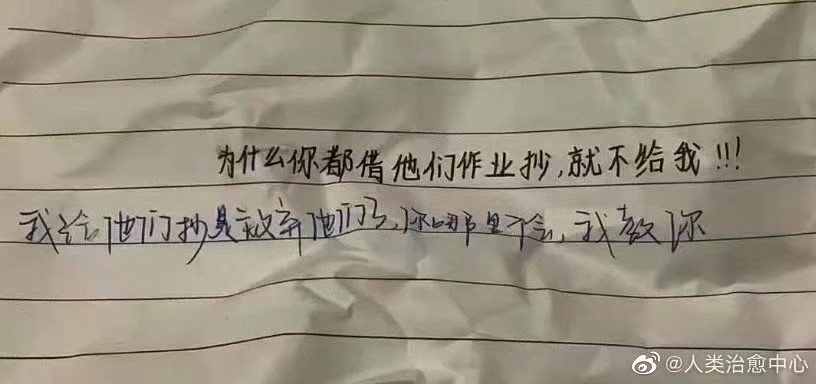 为什么你都借他们作业抄,就不给我!!!
我给他们抄是放弃他们了,你哪里不会,我教你
@人类治愈中心